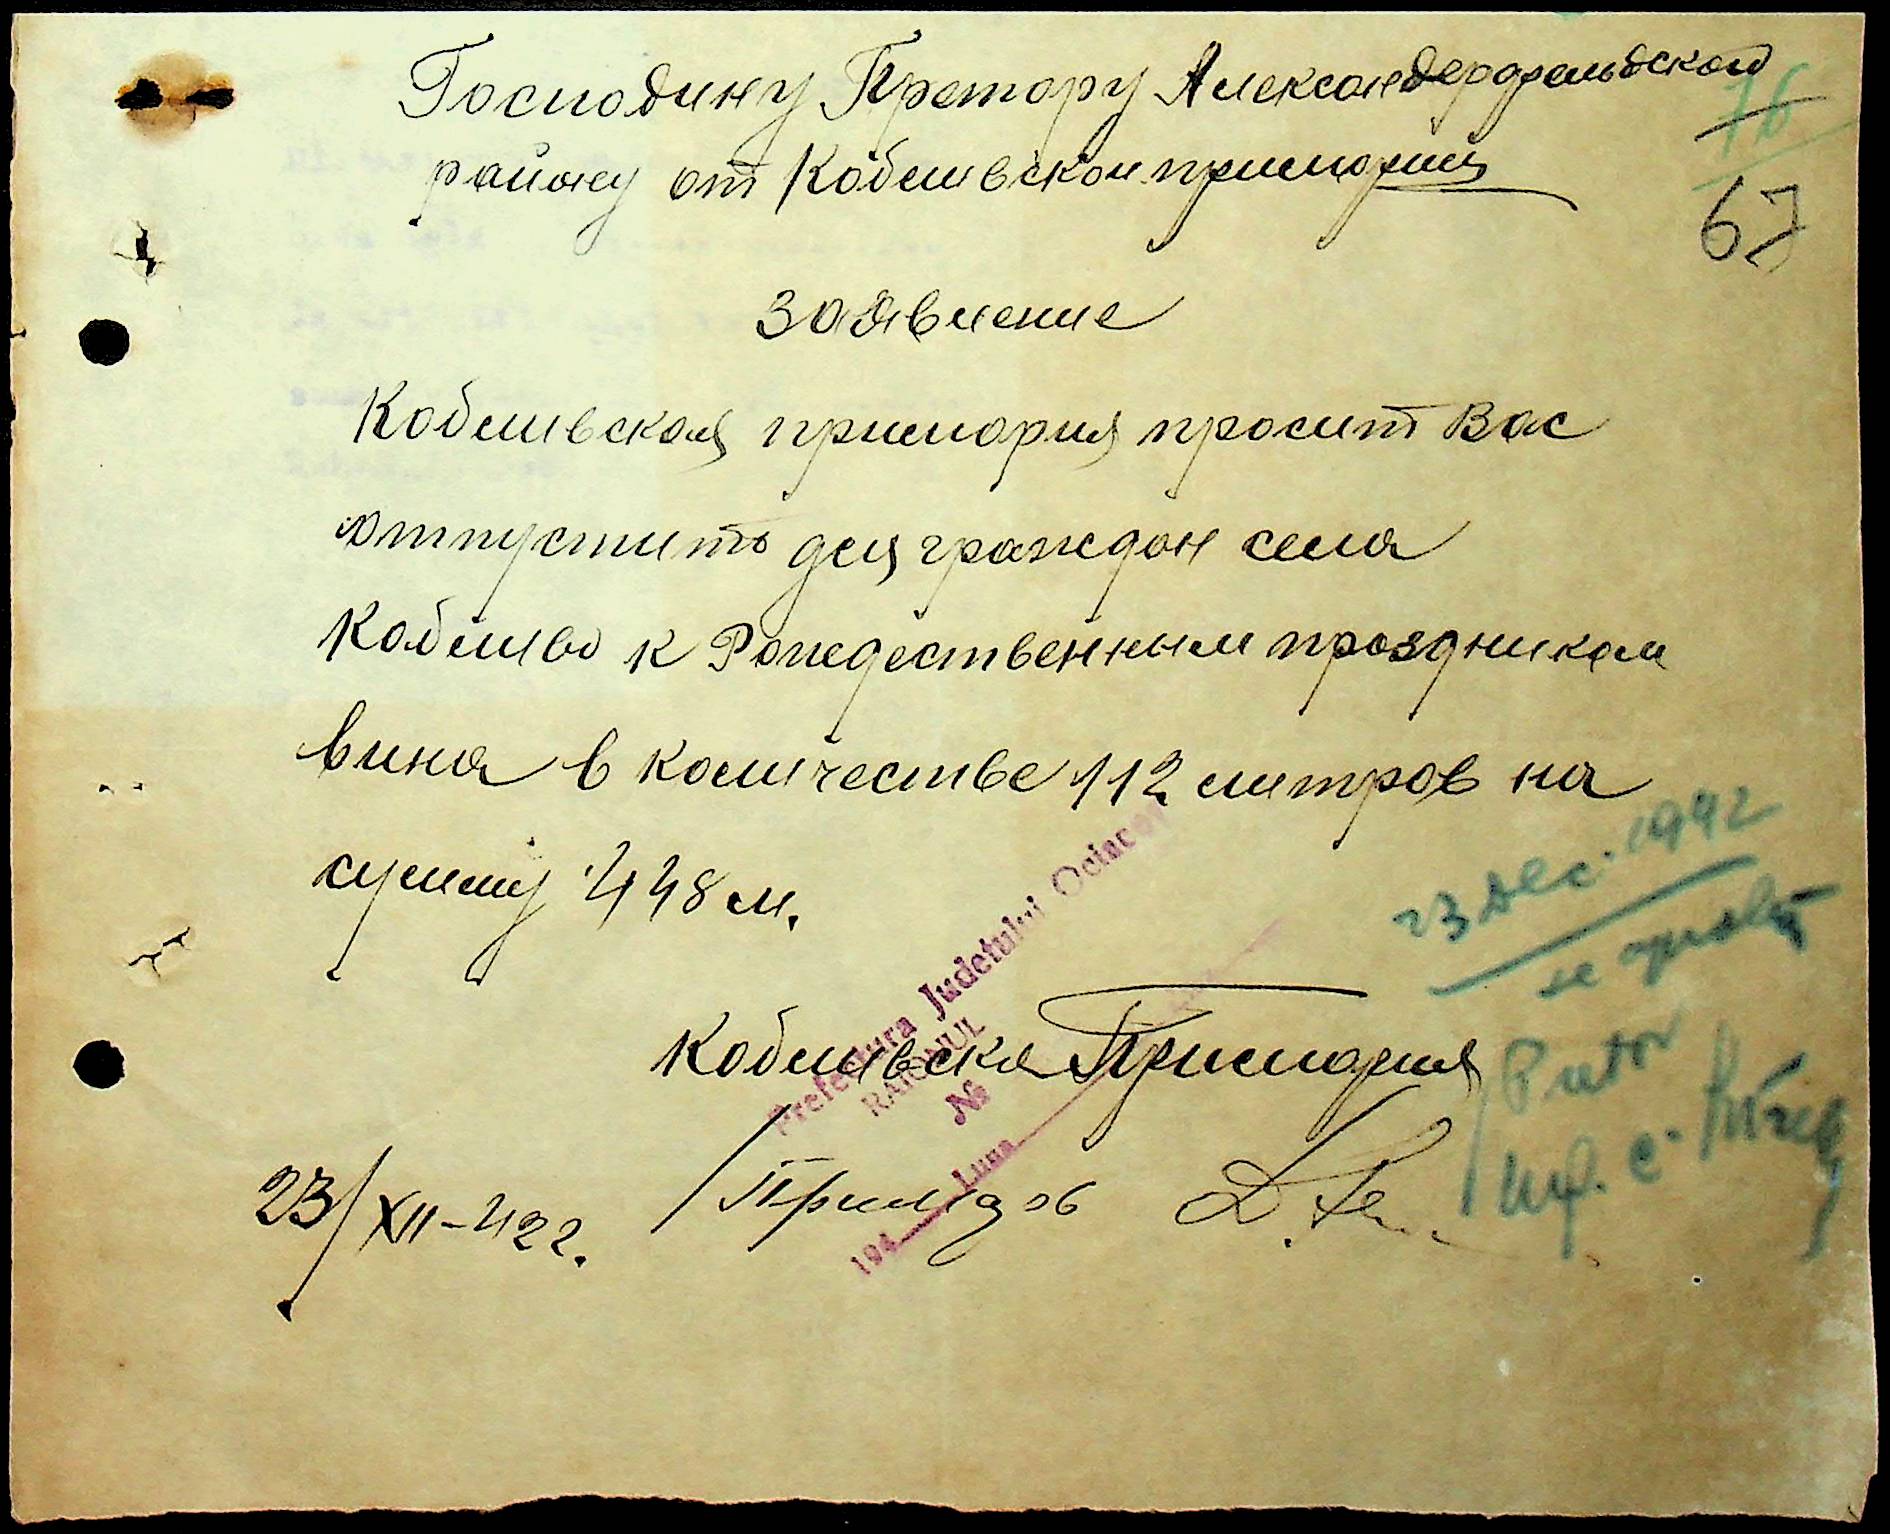 Господину Претору Александерфельдского
району от Коблевской примории
76
67
заявление
Коблевская примория просит Вас
отпустить для граждан села
Коблево к Рождественным праздникам
вина в количестве 112 литров на
сумму 448 м.
23 Dec. 1942
se aprobă
Коблевска Примория
Pretor
23/XII-42 г.
Prefectura Judetului Ociacov
RAIONUL
№
194 Luna